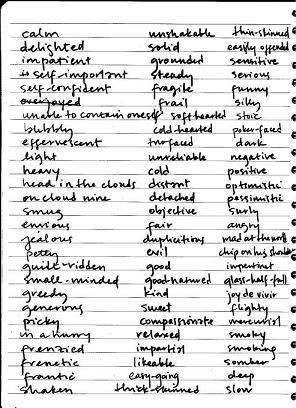 calm unshakable thin-skinned
delighted solid easily offended
impatient grounded sensitive
self-important steady serious
self-confident fragile funny
overjoyed frail silky
unable to contain oneself softhearted stoic
bubbly cold hearted poker-faced
effervescent two faced dark
light unreliable negative
heavy cold positive
head in the clouds distant optimistic
on cloud nine detached pessimistic
smug objective surly
envious fair angry
jealous duplicitious mad at the world
petty evil chip on his shoulder
guilt-ridden good impertinent
small-minded good-natured glass-half-full
greedy kind joy de vivir
generous sweet flighty
picky compassionate mercurial
in a hurry relaxed smoky
frenzied impartial smoking
frenetic likeable somber
frantic easy-going deep
shaken thick-skinned slow